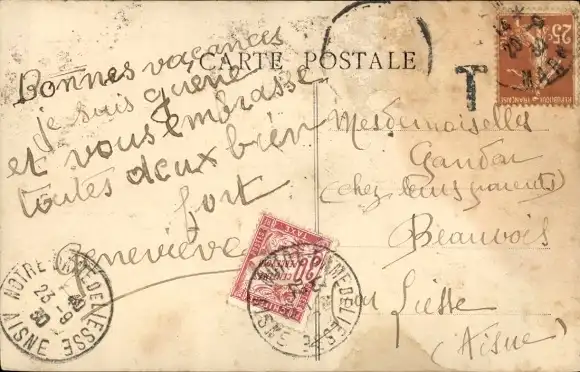 CARTE POSTALE
Bonnes vacances
je suis guérie
et vous embrasse
toutes deux bien
fort
Geneviève
T
25c
Mesdemoiselles
Gandon
(chez leurs parents)
Beauvois
par Liesse
(Aisne)
NOTRE-DAME-DE-LIESSE
23 -9
30
AISNE
30
CENTIMES
A PERCEVOIR
NOTRE-DAME-DE-LIESSE
AISNE